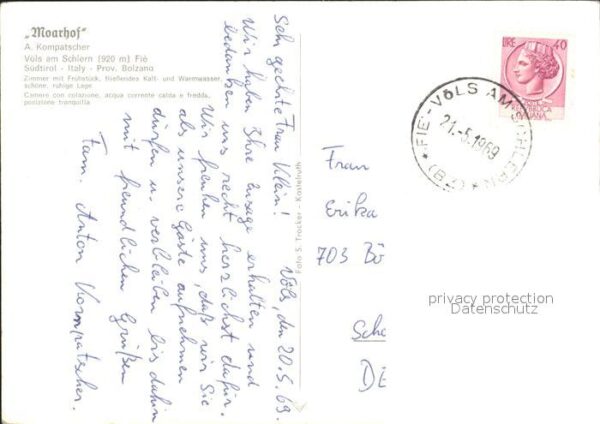 „Moarhof"
A. Kompatscher
Völs am Schlern (920 m) Fiè
Südtirol - Italy - Prov. Bolzano
Zimmer mit Frühstück, fließendes Kalt- und Warmwasser,
schöne, ruhige Lage
Camere con colazione, acqua corrente calda e fredda,
posizione tranquilla
Völs, den 20.5.69.
Sehr geehrte Frau Klein!
Wir haben Ihre Zusage erhalten und
bedanken uns recht herzlichst dafür.
Wir freuen uns, daß wir Sie
als unsere Gäste aufnehmen
dürfen u. verbleiben bis dahin
mit freundlichen Grüßen
Fam. Anton Kompatscher.
Foto S. Trocker - Kastelruth
LIRE 40
FIE'-VÖLS AM SCHLERN (BZ)
21.-5.1969
Frau
Erika
703 Bö
Sch
DE
privacy protection
Datenschutz